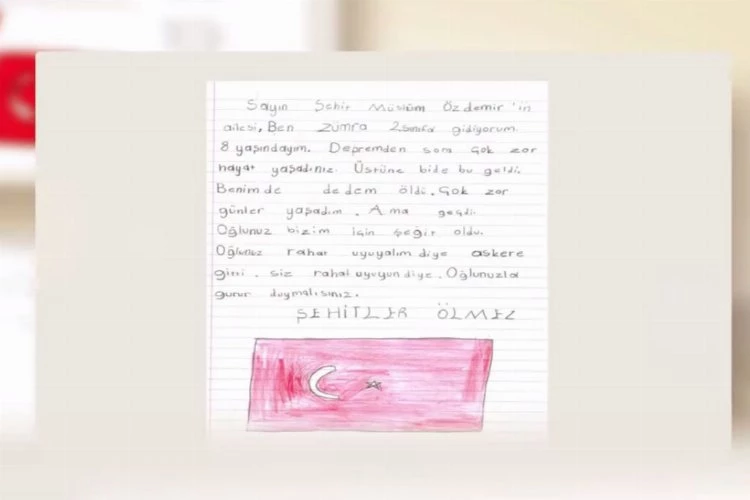 Sayın Şehit Müslüm Özdemir'in
ailesi, Ben Zümra 2.sınıfa gidiyorum.
8 yaşındayım. Depremden sora çok zor
hayat yaşadınız. Üstüne bide bu geldi.
Benimde dedem öldü. Çok zor
günler yaşadım. Ama geçdi.
Oğlunuz bizim için şeğit oldu.
Oğlunuz rahat uyuyalım diye askere
girri. siz rahat uyuyun diye. Oğlunuzla
gurur duymalısınız.
ŞEHİTLER ÖLMEZ